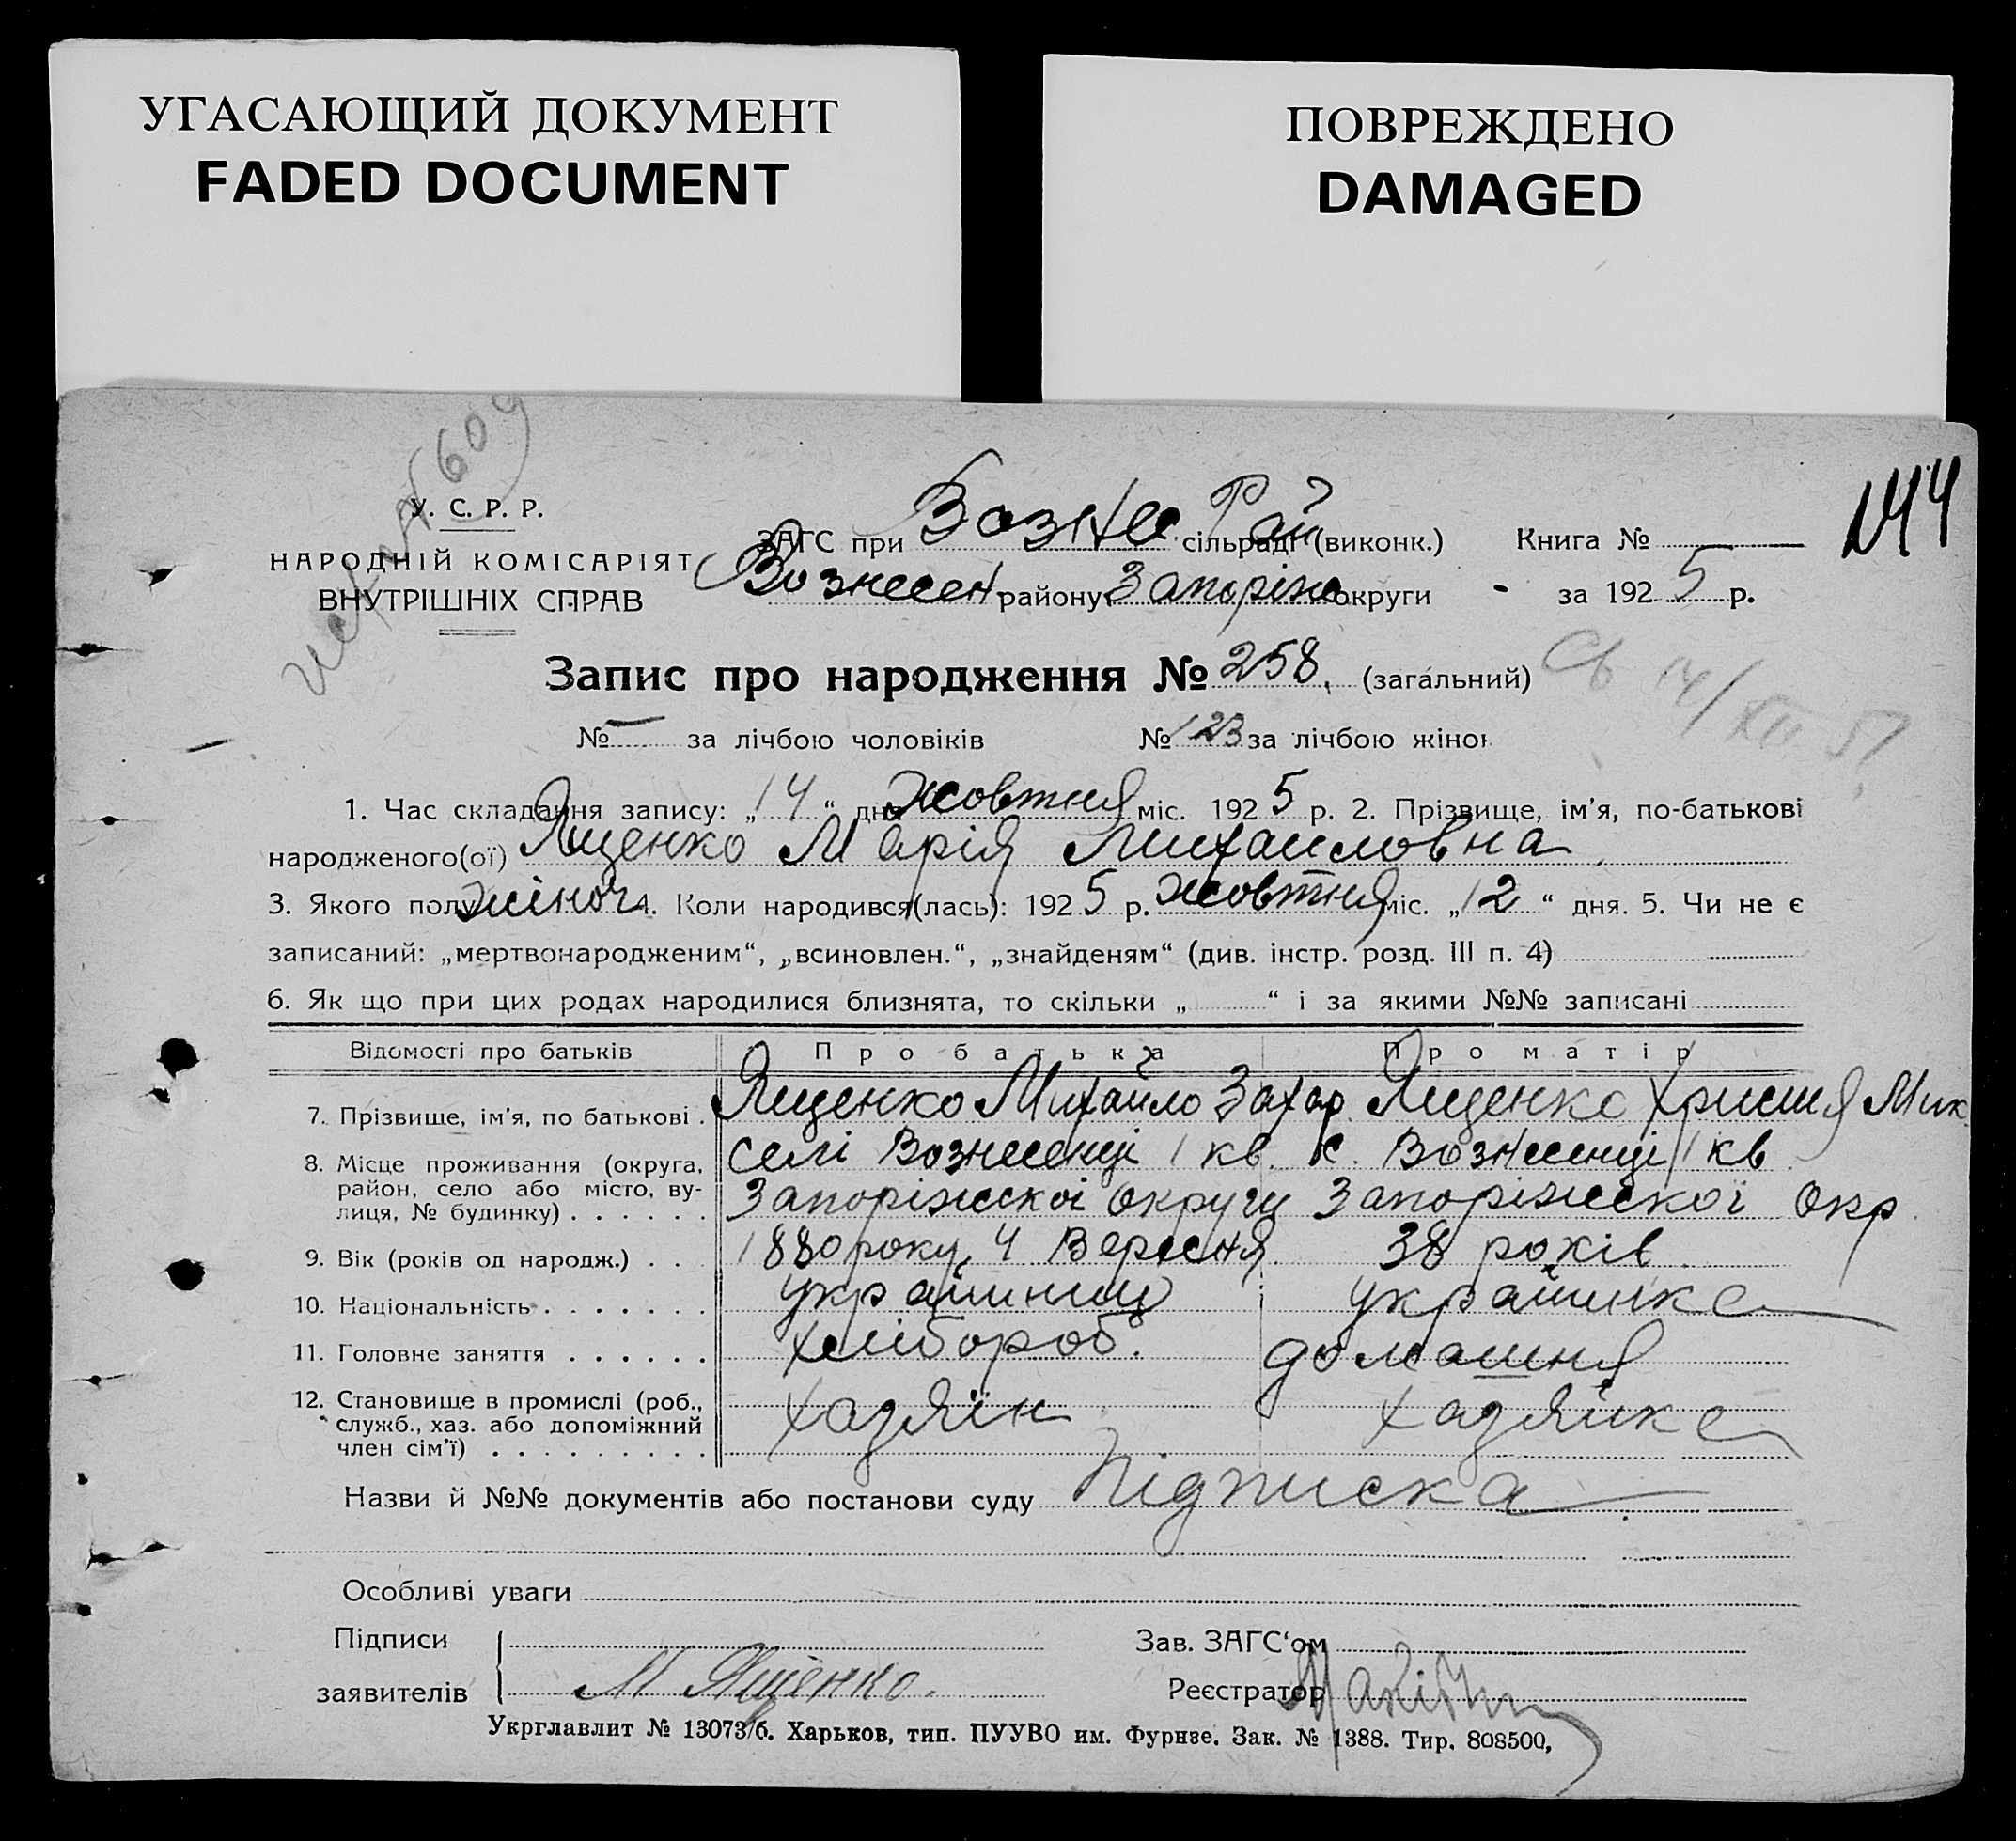 УГАСАЮЩИЙ ДОКУМЕНТ
FADED DOCUMENT
ПОВРЕЖДЕНО
DAMAGED
144
У. С. Р. Р.
НАРОДНІЙ КОМІСАРІЯТ
ВНУТРІШНІХ СПРАВ
ЗАГС при Возне. Рай сільраді (виконк.) Книга №
Вознесен району Запоріж округи за 1925 р.
Запис про народження № 258. (загальний)
№ — за лічбою чоловіків № 123 за лічбою жінок
1. Час складання запису: „14“ дня жовтня міс. 1925 р. 2. Прізвище, ім'я, по-батькові
народженого(ої) Ященко Марія Михаиловна
3. Якого полу жіноч 4. Коли народився(лась): 1925 р. жовтня міс. „12“ дня. 5. Чи не є
записаний: „мертвонародженим“, „всиновлен.“, „знайденям“ (див. інстр. розд. III п. 4)
6. Як що при цих родах народилися близнята, то скільки „ “ і за якими №№ записані
Відомості про батьків Про батька Про матір
7. Прізвище, ім'я, по батькові . Ященко Михайло Захар. Ященко Христя Мик
8. Місце проживання (округа, селі Вознесенці 1 кв. с. Вознесенці 1 кв
район, село або місто, ву-
лиця, № будинку) . . . . . . Запоріжскоі округи Запоріжскої окр
9. Вік (років од народж.) . . . 1880 року, 4 Вересня 38 років.
10. Національність . . . . . . . українец українка
11. Головне заняття . . . . . . хлібороб. домашня
12. Становище в промислі (роб., хазяїн хазяйка
служб., хаз. або допоміжний
член сім'ї) . . . . . . . . .
Назви й №№ документів або постанови суду Підписка
Особливі уваги
Підписи Зав. ЗАГС'ом
заявителів М Ященко. Реєстратор
Укрглавлит № 13073/б. Харьков, тип. ПУУВО им. Фурнзе. Зак. № 1388. Тир. 808500,